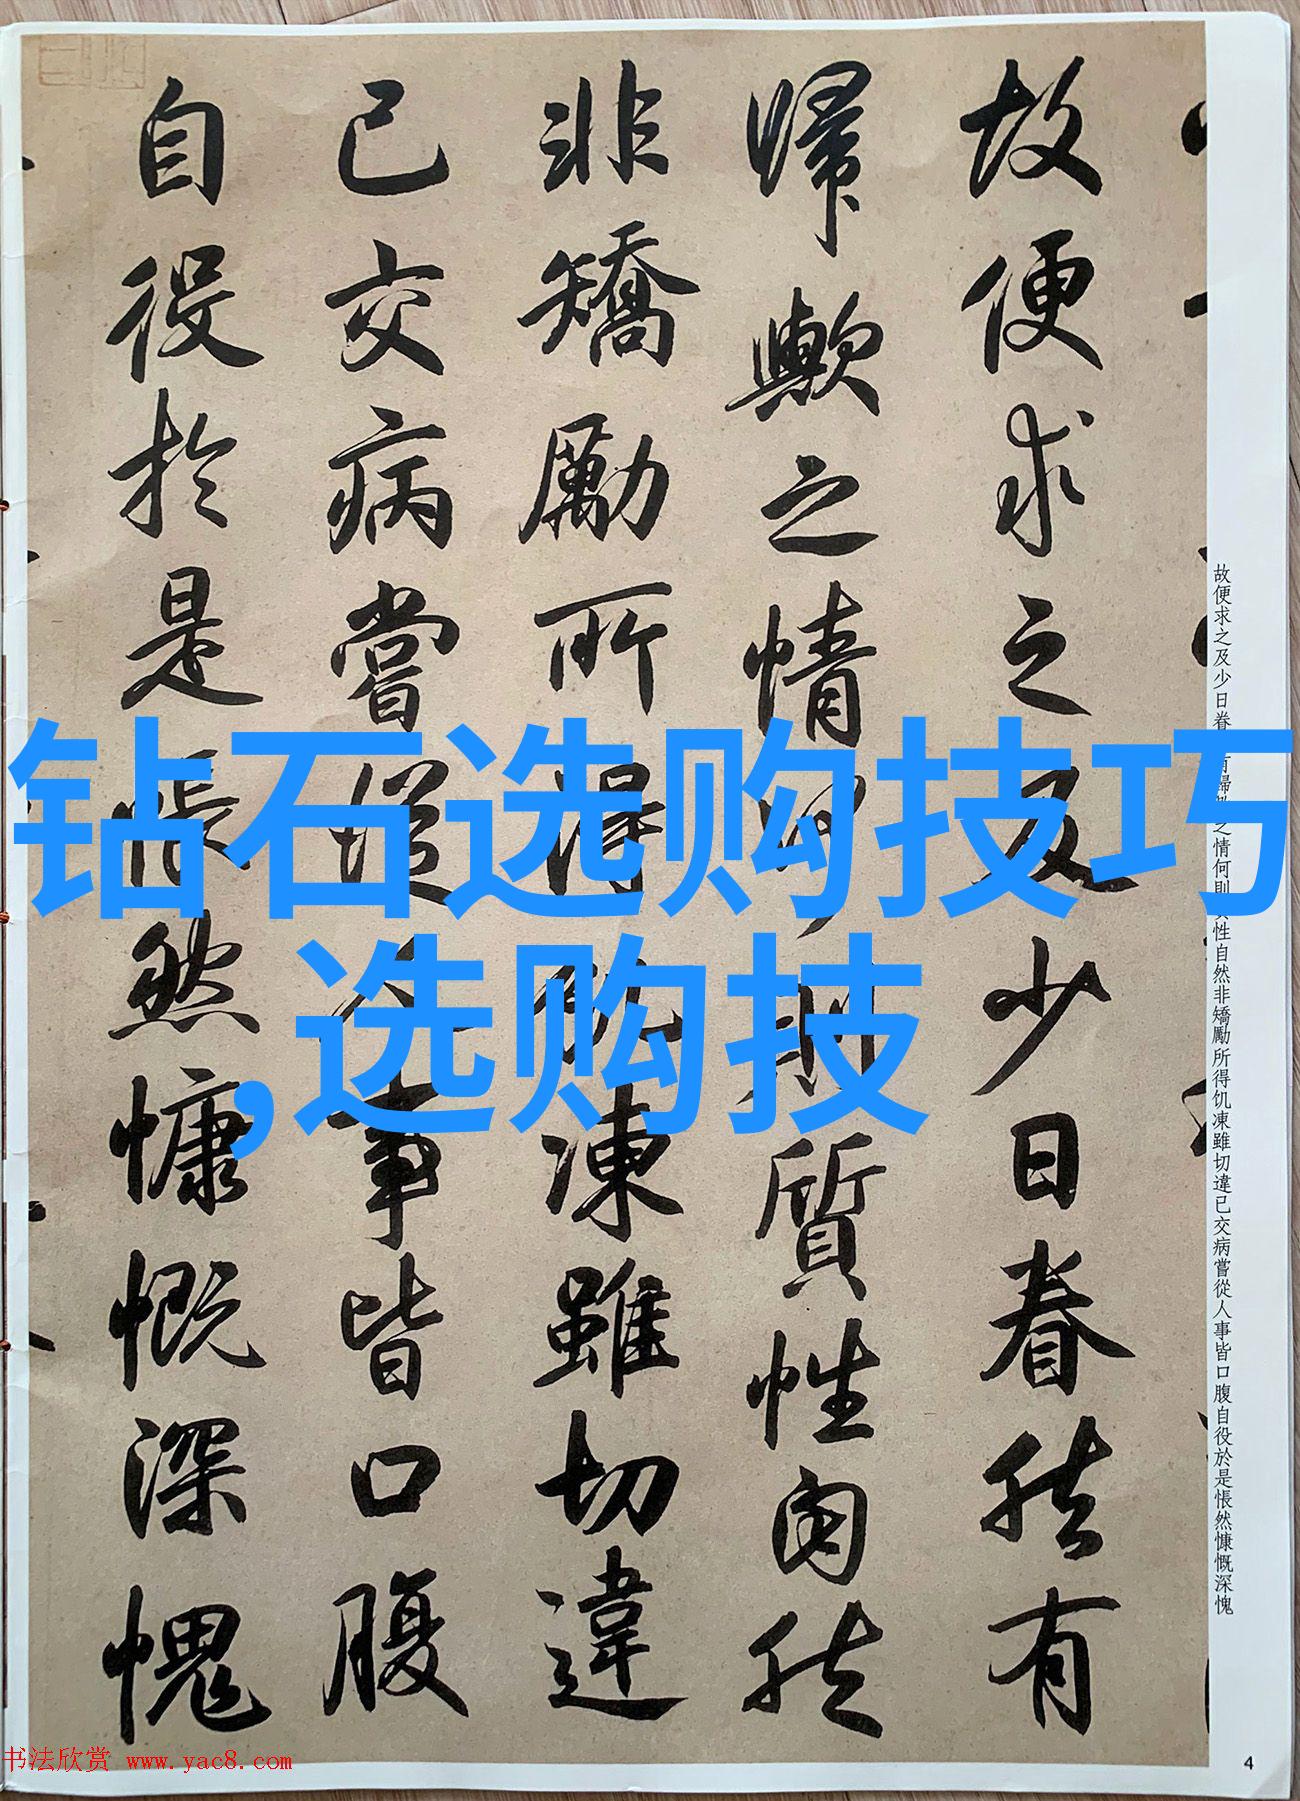 故便求之及少日眷然有
歸歟之情何則質性自然
非矯勵所得飢凍雖切違
已交病嘗從人事皆口腹
自役於是悵然慷慨深愧
故便求之及少日眷
之情何則
性自然非矯勵所得饥凍雖切違已交病嘗從人事皆口腹自役於是悵然慷慨深愧
钻石选购技巧
,选购技
书法欣赏 www.yac8.com
4